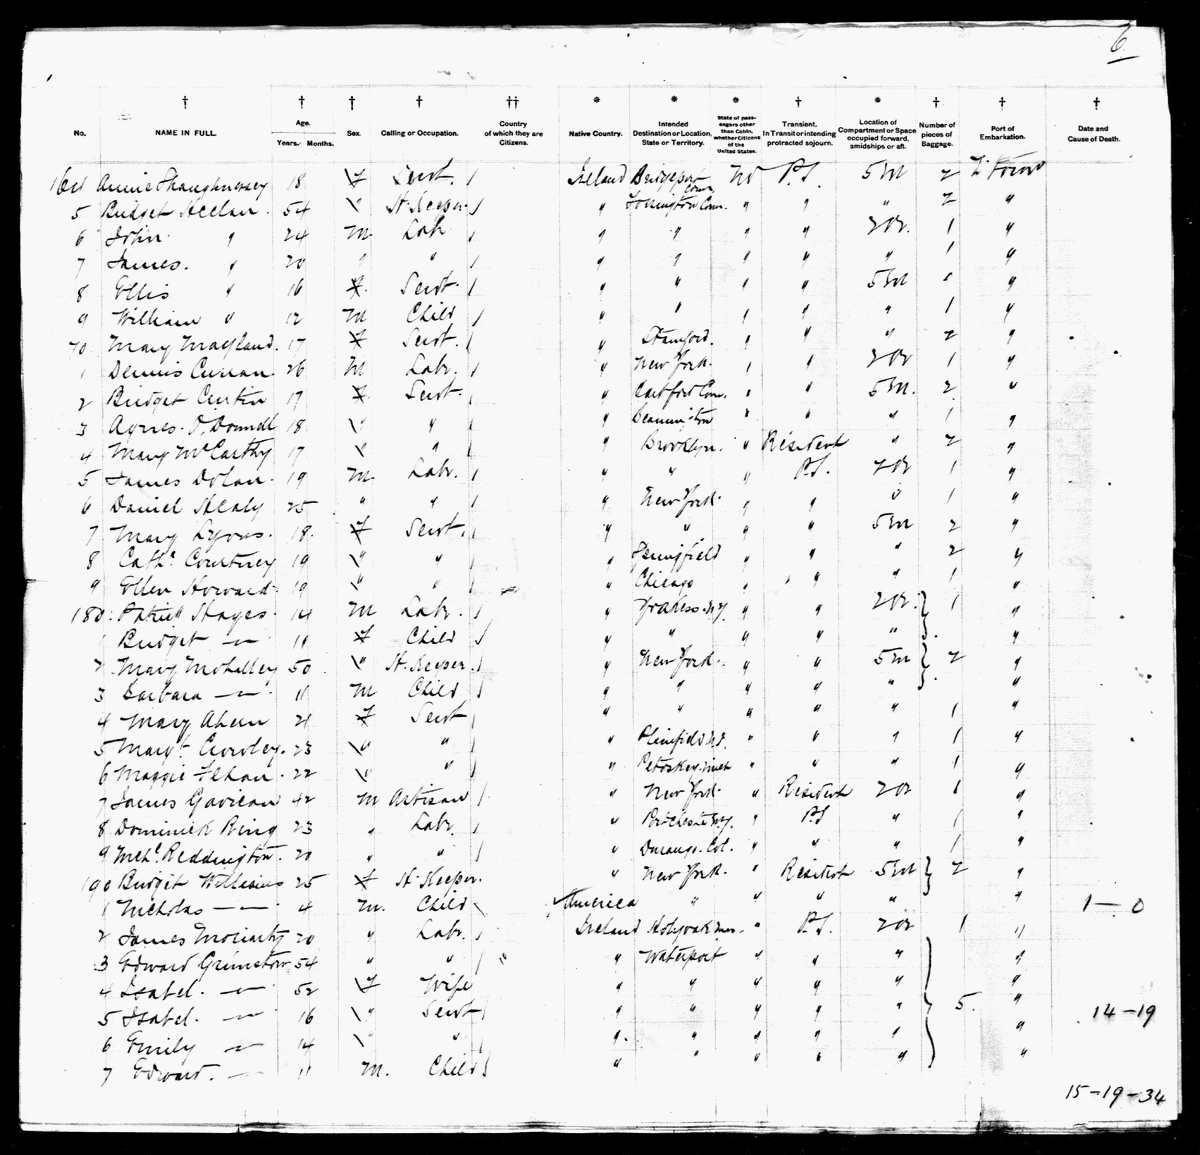 6
No. NAME IN FULL. Age. Years. Months. Sex. Calling or Occupation. Country of which they are Citizens. Native Country. Intended Destination or Location, State or Territory. State of passengers other than Cabin, whether Citizens of the United States. Transient, In Transit or intending protracted sojourn. Location of Compartment or Space occupied forward, midships or aft. Number of pieces of Baggage. Port of Embarkation. Date and Cause of Death.
164 Annie Shaughnessy 18 f Servt. Ireland Bridgeport Conn No P.S. 5 M 2
5 Bridget 54 " H. Keeper " Torrington Con. " " " 2 "
6 John " 24 M Labr " " " " 2 or. 1 "
7 James. " 20 " " " " " " " 1 "
8 Ellis " 16 f. Servt. " " " " 5 M 1 "
9 William " 12 M Child " " " " " 1 "
70 Mary Mayland. 17 f Servt. " Stamford. " " " 2 "
1 Dennis Curran. 26 M Labr. " New York. " " 2 or 1 "
2 Bridget Curtin 17 f. Servt. " Hartford Con. " " 5 M. 2 "
3 Agnes O'Donnell 18 " " " " " " 1 "
4 Mary McCarthy 17 " " " Brooklyn. " Resident " 2 "
5 James Dolan. 19 M Labr. " " " P.S. 2 or 1 "
6 Daniel Healy 25 " " " New York. " " " 1 "
7 Mary Lyons. 18. f Servt. " " " " 5 M 2 "
8 Cath. Courtney 19 " " " Springfield " " " 2 "
9 Ellen Howard 19 " " " Chicago " " " 1 "
180. Patrick Hayes. 14 M Labr. " " " 2 or. 1 "
1 Bridget — 11 f Child " " " " " "
2 Mary 50 " H. Keeper. " New York. " " 5 M 2 "
3 Barbara — 11 M Child " " " " " "
4 Mary Ahern 21 f Servt " " " " " 1 "
5 Margt. Crowley. 23 " " " Plainfield NJ. " " " 1 "
6 Maggie 22 " " " Petoskey Mich " " " 1 "
7 James 42 M Artisan " New York. " Resident 2 or 1 "
8 Dominick Ring 23 " Labr. " Portchester NY. " P.S " 1 "
9 Mchl. Reddington. 20 " " " Durango. Col. " " " 1 "
190 Bridget Williams 25 f H. Keeper. " New York. " Resident 5 M 2 "
1 Nicholas — 4 M. Child America " " " " " 1—0
2 James Moriarty 20 " Labr. Ireland Holyoak Mas. " P.S. 2 or 1 "
3 Edward Grimston 54 " " " Waterport " " " "
4 Isabel. — 52 f Wife " " " " " "
5 Isabel. — 16 " Servt " " " " " 5. " 14—19
6 Emily — 14 " " " " " " " "
7 Edward. — 11 M. Child " " " " " "
15—19—34